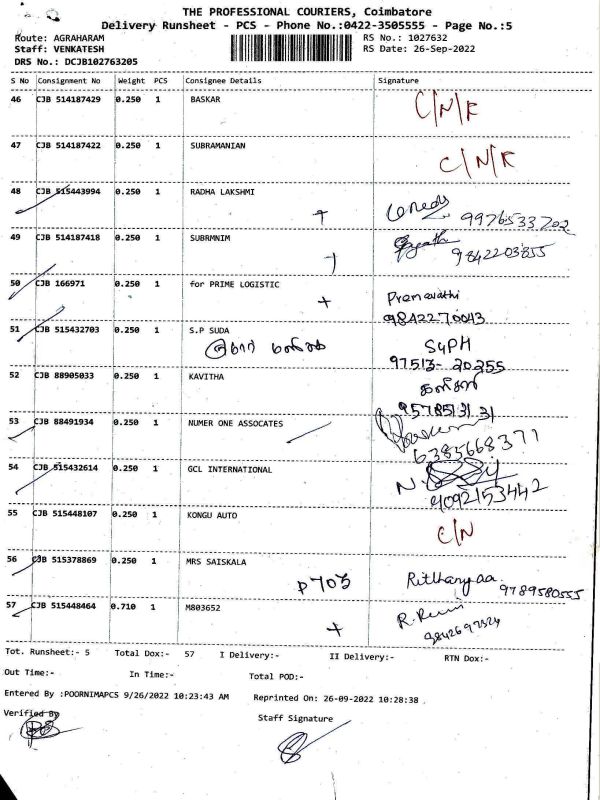 THE PROFESSIONAL COURIERS, Coimbatore
Delivery Runsheet - PCS - Phone No.:0422-3505555 - Page No.:5
Route: AGRAHARAM RS No.: 1027632
Staff: VENKATESH RS Date: 26-Sep-2022
DRS No.: DCJB102763205
S No Consignment No Weight PCS Consignee Details Signature
46 CJB 514187429 0.250 1 BASKAR C/N/K
47 CJB 514187422 0.250 1 SUBRAMANIAN C/N/K
48 CJB 515443994 0.250 1 RADHA LAKSHMI
9976533202
49 CJB 514187418 0.250 1 SUBRMNIM
9842203855
50 CJB 166971 0.250 1 for PRIME LOGISTIC
+ Premavathi
9842270043
51 CJB 515432703 0.250 1 S.P SUDA
97513-20255
52 CJB 88905033 0.250 1 KAVITHA
9578513131
53 CJB 88491934 0.250 1 NUMER ONE ASSOCATES
6385668371
54 CJB 515432614 0.250 1 GCL INTERNATIONAL
9092153442
55 CJB 515448107 0.250 1 KONGU AUTO C/N
56 CJB 515378869 0.250 1 MRS SAISKALA
P703 Rithanyaa 9789580555
57 CJB 515448464 0.710 1 M803652
+ 9842697524
Tot. Runsheet:- 5 Total Dox:- 57 I Delivery:- II Delivery:- RTN Dox:-
Out Time:- In Time:- Total POD:-
Entered By :POORNIMAPCS 9/26/2022 10:23:43 AM Reprinted On: 26-09-2022 10:28:38
Verified By Staff Signature